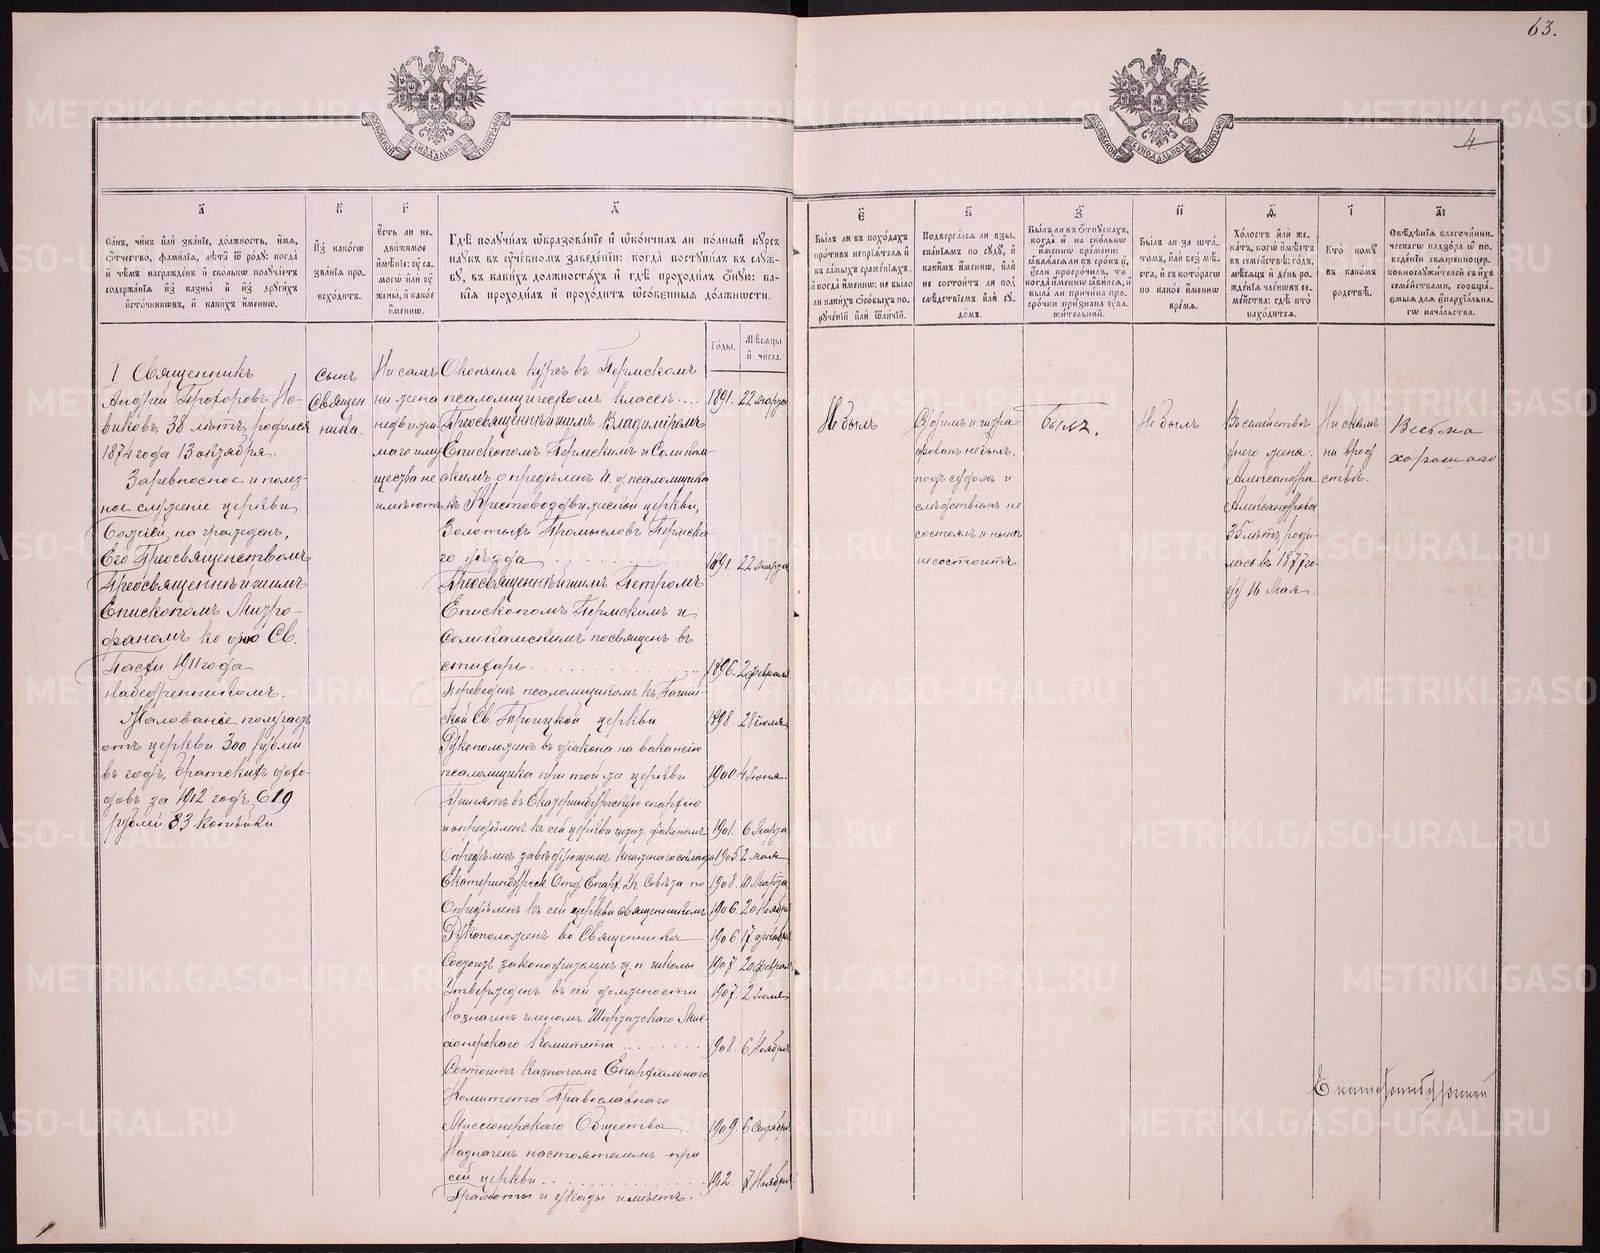 63.
4
МОСКОВСКОЙ СѴНОДАЛЬНОЙ ТИПОГРАФІИ
МОСКОВСКОЙ СѴНОДАЛЬНОЙ ТИПОГРАФІИ
а҃
Са́нъ, чи́нъ и҆лѝ зва́нїе, до́лжность, и҆́мѧ,
ѻ҆́тчество, фами́лїѧ, лѣ́та ѿ ро́дꙋ: когда̀
и҆ чѣ́мъ награжде́нъ и҆ ско́лькѡ полꙋча́етъ
содержа́нїѧ и҆з̾ казны̀ и҆ и҆з̾ дрꙋги́хъ
и҆сто́чникѡвъ, и҆ каки́хъ и҆́меннѡ.
в҃
И҆з̾ како́гѡ
зва́нїѧ про-
исхо́дитъ.
г҃
Є҆́сть ли не-
дви́жимое
и҆мѣ́нїе: ᲂу҆ са-
могѡ̀ и҆лѝ ᲂу҆
жены̀, и҆ како́е
и҆́меннѡ.
д҃
Гдѣ̀ полꙋчи́лъ ѡ҆бразова́нїе и҆ ѡ҆ко́нчилъ ли по́лный кꙋ́рсъ
наꙋ́къ въ ᲂу҆че́бномъ заведе́нїи: когда̀ постꙋпи́лъ въ слꙋ́ж-
бꙋ, въ каки́хъ до́лжностѧхъ и҆ гдѣ̀ проходи́лъ ѻ҆́нꙋю: ка-
кі̑ѧ проходи́лъ и҆ прохо́дитъ ѡ҆со́бенныѧ до́лжности.
Го́ды.
Мѣ́сѧцы
и҆ чи́сла.
є҃
Бы́лъ ли въ похо́дахъ
проти́въ непрїѧ́телѧ и҆
въ са́мыхъ сраже́нїѧхъ,
и҆ когда̀ и҆́меннѡ: не бы́ло
ли каки́хъ ѻ҆со́быхъ по-
рꙋче́нїй и҆лѝ ѿли́чїй.
ѕ҃
Подверга́лсѧ ли взы-
ска́нїѧмъ по сꙋдꙋ̀, и҆
каки́мъ и҆́меннѡ, и҆лѝ
не состои́тъ ли под̾
слѣ́дствїемъ и҆лѝ сꙋ-
до́мъ.
з҃
Бы́лъ ли въ ѻ҆́тпꙋскахъ,
когда̀ и҆ на ско́лькѡ
и҆́меннѡ вре́мени:
ꙗ҆влѧ́лсѧ ли въ сро́къ и҆,
є҆́сли просро́чилъ, то
когда̀ и҆́меннѡ ꙗ҆ви́лсѧ, и҆
была̀ ли причи́на про-
сро́чки при́знана ᲂу҆ва-
жи́тельной.
и҃
Бы́лъ ли за шта́-
томъ, и҆лѝ без̾ мѣ́-
ста, и҆ съ кото́рагѡ
по како́е и҆́меннѡ
вре́мѧ.
ѳ҃
Хо́лостъ и҆лѝ же-
на́тъ, когѡ̀ и҆мѣ́етъ
въ семе́йствѣ: го́дъ,
мѣ́сѧцъ и҆ де́нь ро-
жде́нїѧ чле́нѡвъ се-
ме́йства: гдѣ̀ кто̀
нахо́дитсѧ.
і҃
Кто̀ комꙋ̀
въ како́мъ
родствѣ̀.
а҃і
Свѣ́дѣнїѧ благочи́нни-
ческагѡ надзо́ра ѡ҆ по-
веде́нїи свѧщенноцер-
ковнослꙋжи́телей съ и҆́хъ
семе́йствами, сообща́-
ємыѧ длѧ є҆пархїа́льна-
гѡ нача́льства.
1 Священникъ
Андрей Прохоровъ Но-
виковъ, 38 лѣтъ, родился
1874 года 13 октября.
За ревностное и полез-
ное служеніе церкви
Божіей, награжденъ,
Его Преосвященствомъ
Преосвященнѣйшимъ
Епископомъ Митро-
фаномъ ко дню Св.
Пасхи 1911 года
набедренникомъ.
Жалованіе получаетъ
отъ церкви 300 рублей
въ годъ, братскихъ дохо-
довъ за 1912 годъ 619
рублей 83 копѣйки.
сынъ
Священ
ника.
Ни самъ
ни жена
недвижи
маго иму
щества не
имѣютъ.
Окончилъ курсъ въ Пермскомъ
псаломщическомъ классѣ.... 1891. 22 марта
Преосвященнѣйшимъ Владиміромъ
Епископомъ Пермскимъ и Соликам-
скимъ опредѣленъ И. д. псаломщика
къ Крестовоздвиженской церкви,
Золотыхъ Промысловъ Пермска-
го уѣзда ........ 1891. 22 марта
Преосвященнѣйшимъ Петромъ
Епископомъ Пермскимъ и
Соликамскимъ посвященъ въ
стихарь............ 1896. 2 февраля
Переведенъ псаломщикомъ къ
ской Св. Троицкой церкви 1898. 28 іюля
Рукоположенъ въ діакона на вакансію
псаломщика при той же церкви 1900 4 Іюня.
Принятъ въ Екатеринбургскую епархію
и опредѣленъ къ сей церкви штат. діакономъ 1901. 6 Марта
Опредѣленъ завѣдующимъ книжнаго склада 1905 2 мая
Екатеринбургск. Отд. Епарх. Уч. Совѣта по 1908. 10 Марта
Опредѣленъ къ сей церкви священникомъ 1906. 20 Ноября
Рукоположенъ во Священника 1906 17 декабря
Состоитъ законоучителемъ ц. п. школы 1907 20 февраля
Утвержденъ въ сей должности 1907. 2 Іюля
Назначенъ членомъ Шарташскаго Мис-
сіонерскаго Комитета ........ 1908. 6 Ноября
Состоитъ казначеемъ Епархіальнаго
Комитета Православнаго
Миссіонерскаго Общества 1909. 6 Октября
Назначенъ настоятелемъ при
сей церкви............ 1912. 7 Ноября
Грамоты и указы имѣетъ.
Не былъ
Судимъ и штра
фованъ не былъ,
подъ судомъ и
слѣдствіемъ не
состоялъ и нынѣ
не состоитъ
Былъ.
Не былъ
Въ семействѣ
у него жена:
Александра
Александрова
35 лѣтъ роди-
лась въ 1877 го-
ду 16 Мая.
Ни съ кѣмъ
на въ род
ствѣ.
Весьма
хорошаго
Екатеринбургской
METRIKI.GASO-URAL.RU